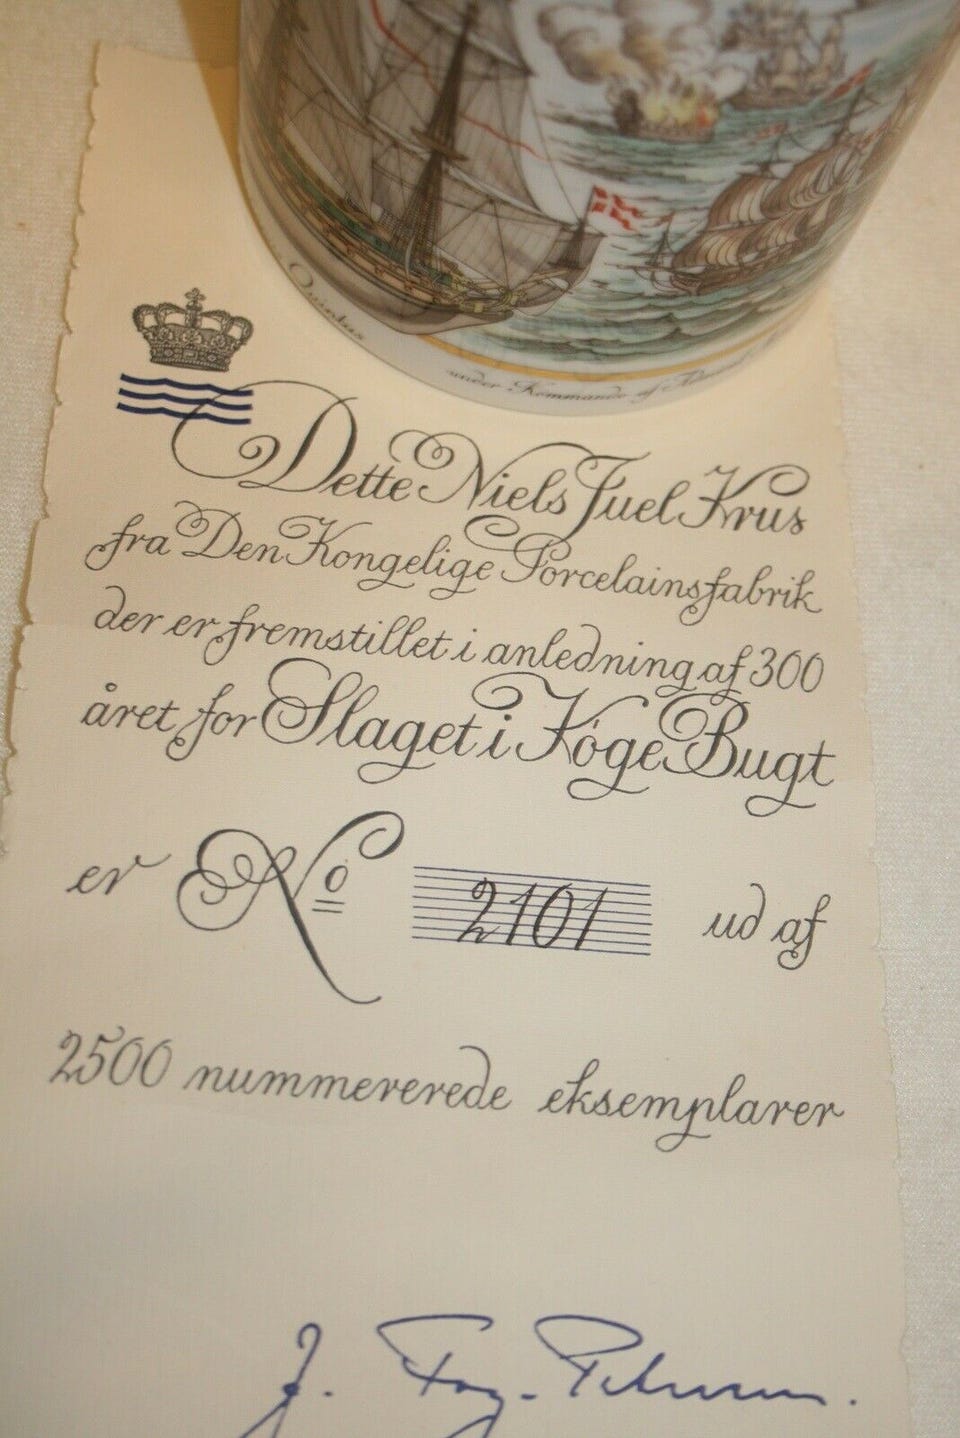 Quintus
under Kommando af Admiral
Dette Niels Juel Krus
fra Den Kongelige Porcelainsfabrik
der er fremstillet i anledning af 300
året for Slaget i Køge Bugt
er No 2101 ud af
2500 nummererede eksemplarer